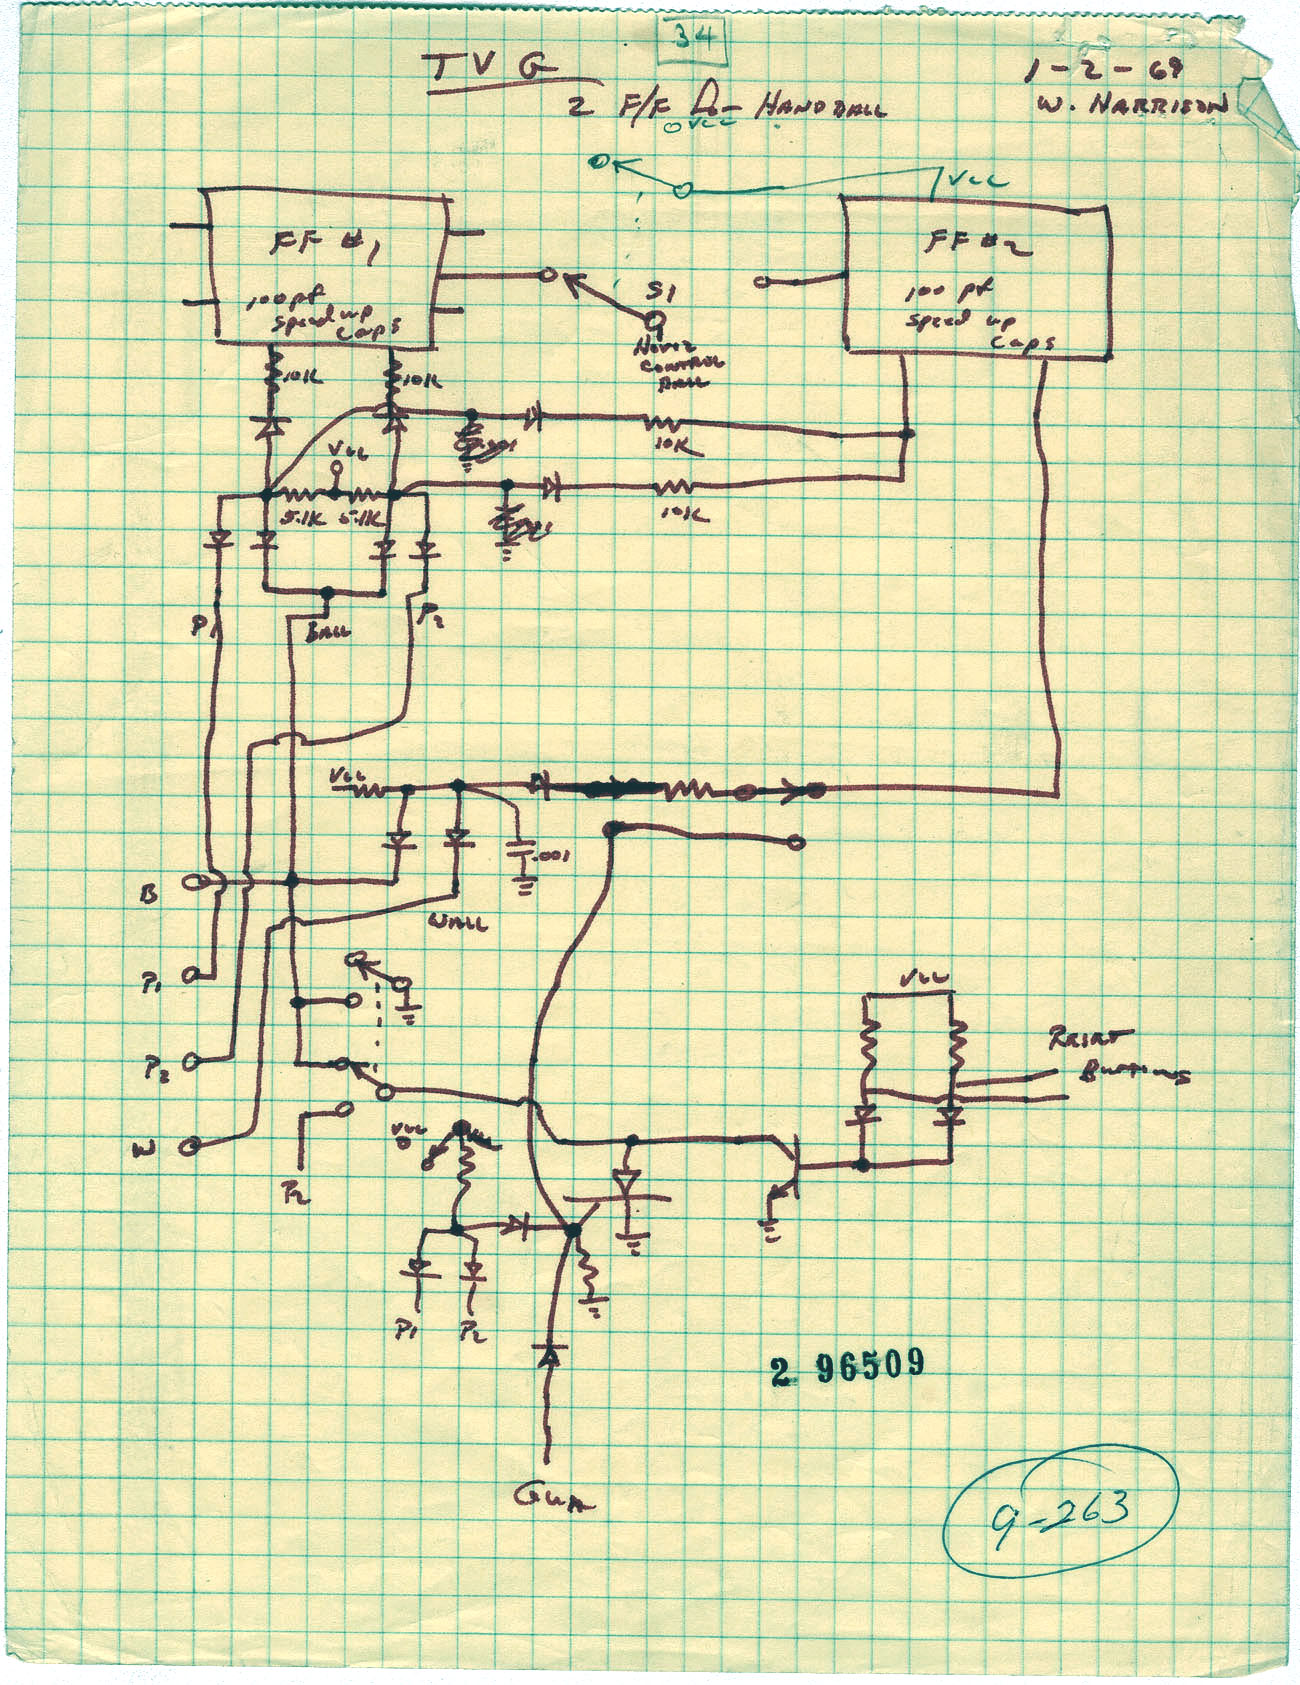 34
TVG
1-2-69
2 F/F Ω- HANDBALL
W. HARRISON
VCC
VCC
FF #1
FF #2
100 pf
speed up
caps
S1
HORIZ
CONTROL
BALL
100 pf
speed up
caps
10K
10K
.001
10K
VCC
5.1K 5.1K
10K
P1
BALL
P2
VCC
.001
B
WALL
P1
VCC
RESET
BUTTONS
P2
VCC
W
P2
P1
P2
2 96509
GUN
9-263